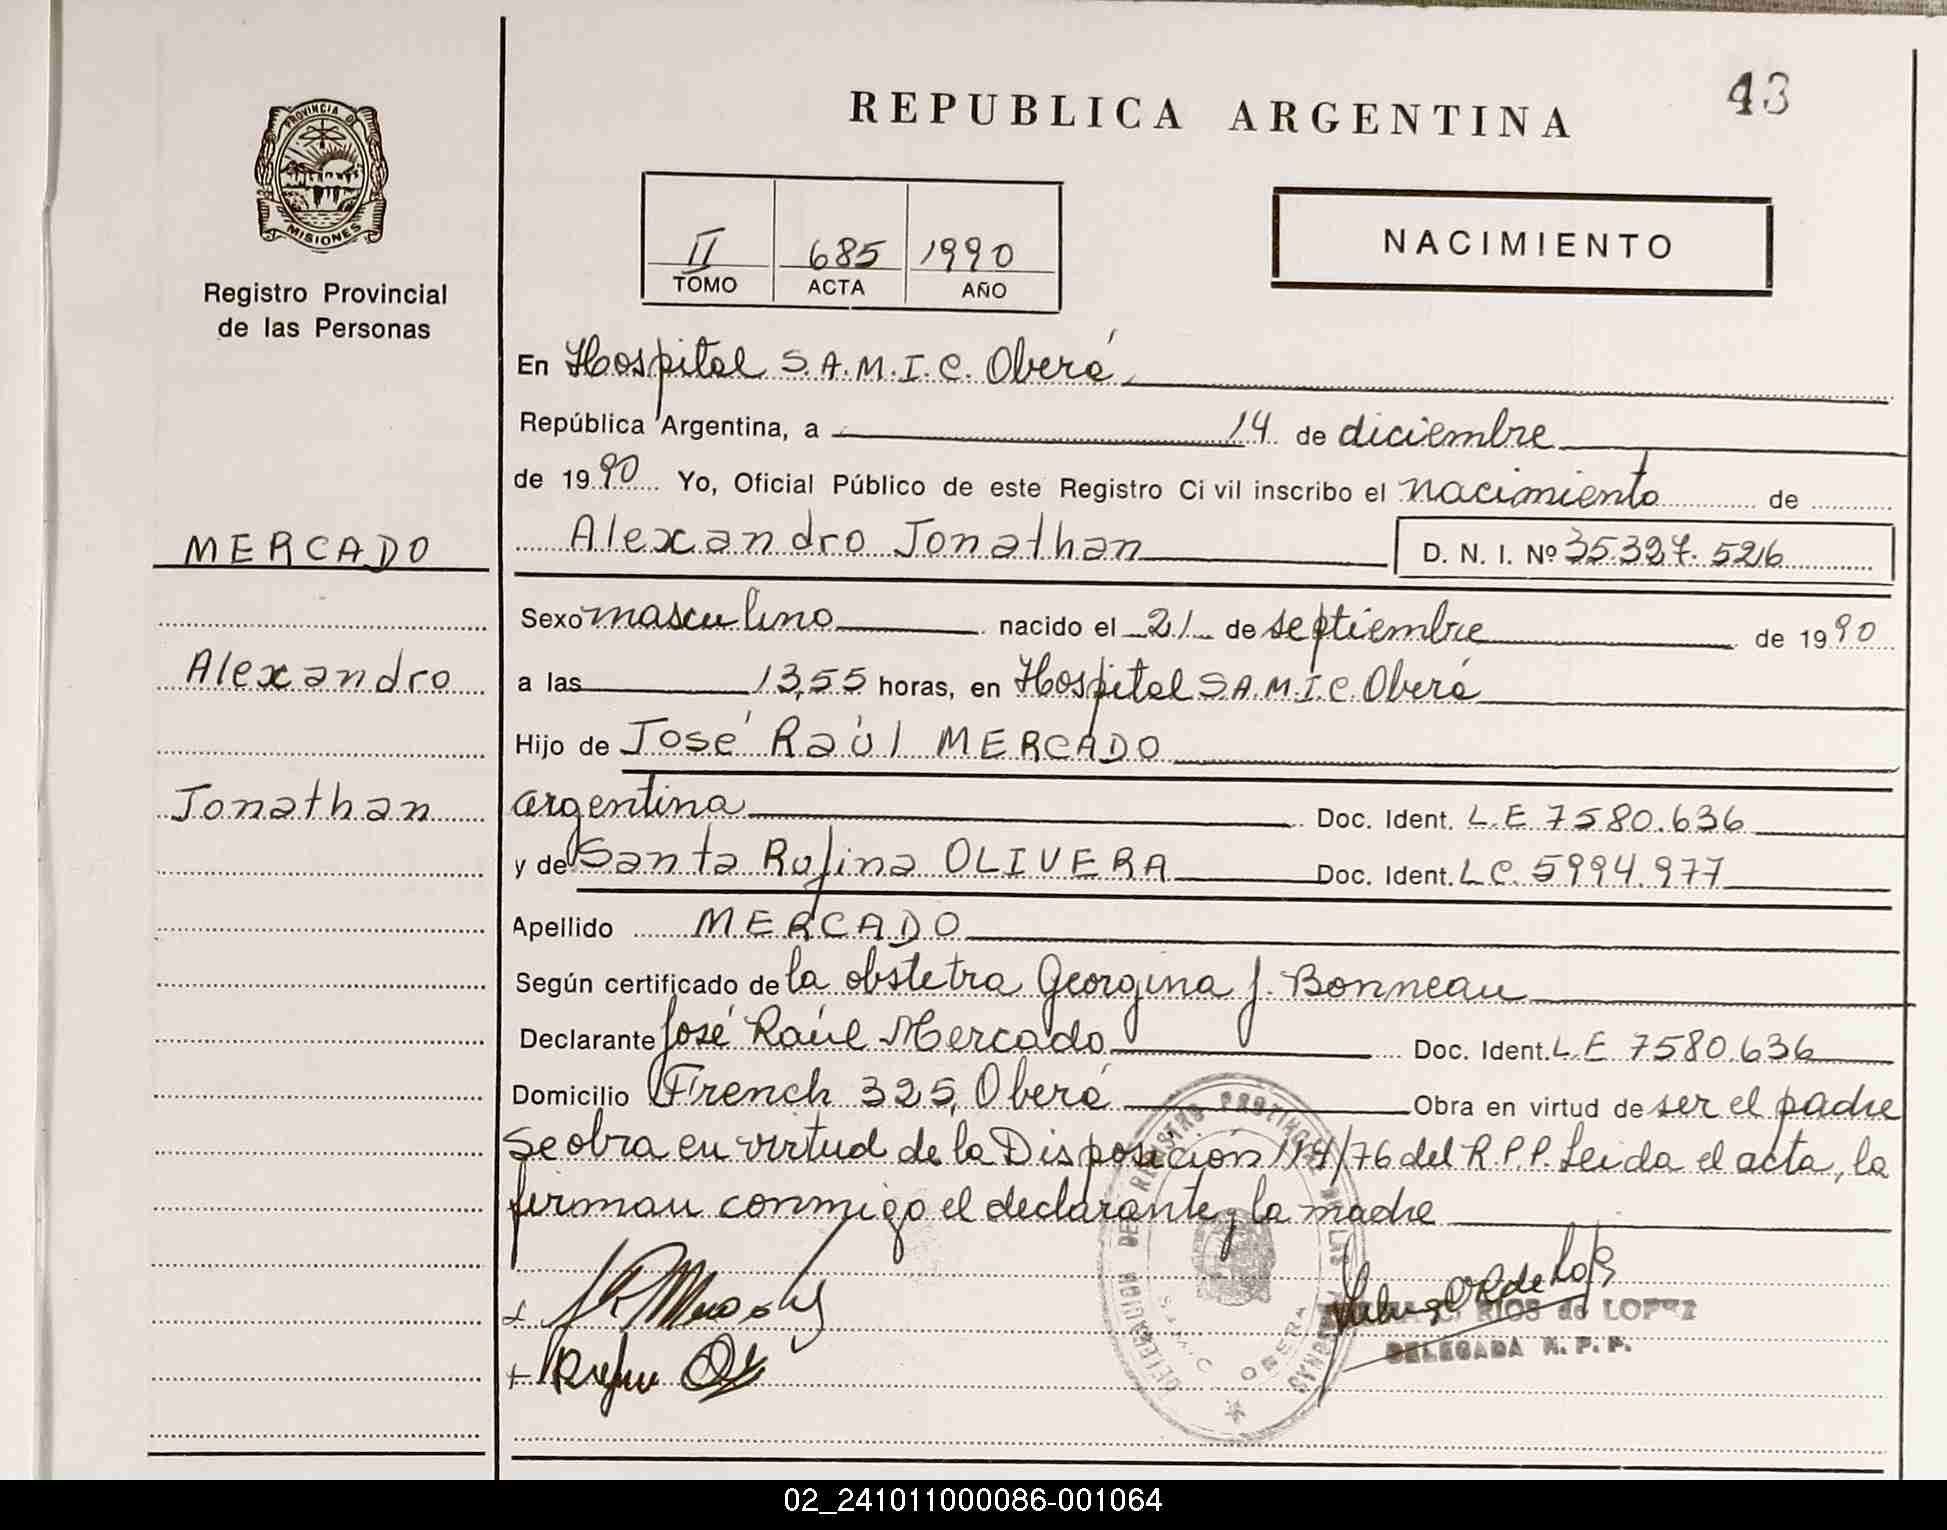 43
REPUBLICA ARGENTINA
PROVINCIA DE
MISIONES
Registro Provincial
de las Personas
II 685 1990
TOMO ACTA AÑO
NACIMIENTO
En Hospital S.A.M.I.C. Oberá
República Argentina, a 14 de diciembre
de 1990 Yo, Oficial Público de este Registro Civil inscribo el nacimiento de
MERCADO
Alexandro Jonathan D. N. I. Nº 35.327.526
Sexo masculino nacido el 21 de septiembre de 1990
Alexandro
a las 13,55 horas, en Hospital S.A.M.I.C. Oberá
Hijo de José Raúl MERCADO
Jonathan
argentina Doc. Ident. L.E 7580.636
y de Santa Rufina OLIVERA Doc. Ident. L.C. 5994.977
Apellido MERCADO
Según certificado de la obstetra Georgina J. Bonneau
Declarante José Raúl Mercado Doc. Ident. L.E 7580.636
Domicilio French 325, Oberá Obra en virtud de ser el padre
Se obra en virtud de la Disposición 114/76 del R.P.P. Leida el acta, la
firman conmigo el declarante y la madre
RIOS de LOPEZ
DELEGADA R. P. P.
OBERA
02_241011000086-001064